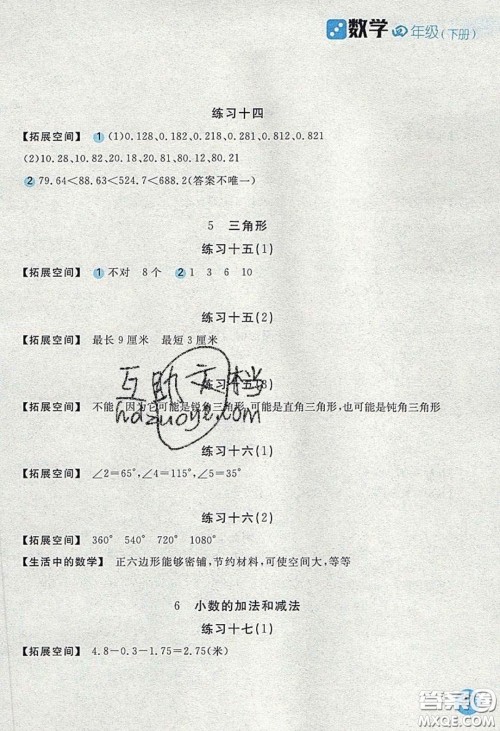 数学 四年级(下册)
练习十四
【拓展空间】 1 (1)0.128、0.182、0.218、0.281、0.812、0.821
(2)10.28、10.82、20.18、20.81、80.12、80.21
2 79.64<88.63<524.7<688.2(答案不唯一)
5 三角形
练习十五(1)
【拓展空间】 1 不对 8个 2 1 3 6 10
练习十五(2)
【拓展空间】 最长9厘米 最短3厘米
练习十五(3)
【拓展空间】 不能，因为它可能是锐角三角形,可能是直角三角形,也可能是钝角三角形
互助文档
hdzuoye.com
练习十六(1)
【拓展空间】 ∠2=65°,∠4=115°,∠5=35°
练习十六(2)
【拓展空间】 360° 540° 720° 1080°
【生活中的数学】 正六边形能够密铺,节约材料,可使空间大,等等
6 小数的加法和减法
练习十七(1)
【拓展空间】 4.8-0.3-1.75=2.75(米)
答案圈
MXQE.COM